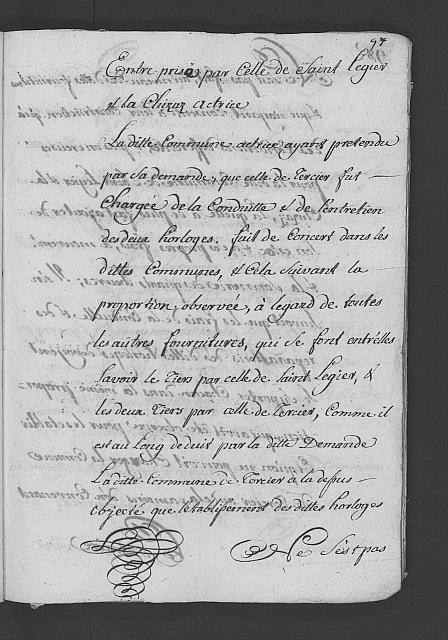 97
Entreprise par Celle de Saint Legier
et la Chiesaz actrice
La ditte Commune actrice ayant pretendu
par Sa demande, que celle de Tercier fut
Chargée de la Conduitte et de l'entretien
des deux horloges, fait de Concert dans les
dittes Communes, et Cela Suivant la
proportion, observée, à legard de toutes
les autres fournitures, qui se font entr'elles
Savoir le Tiers par celle de Saint Legier, &
les deux Tiers par celle de Tercier, Comme il
est au Long deduit par la ditte Demande
La ditte Commune de Tercier a la depus
objecté que l'etablissement des dittes horloges
Ne S'est pas